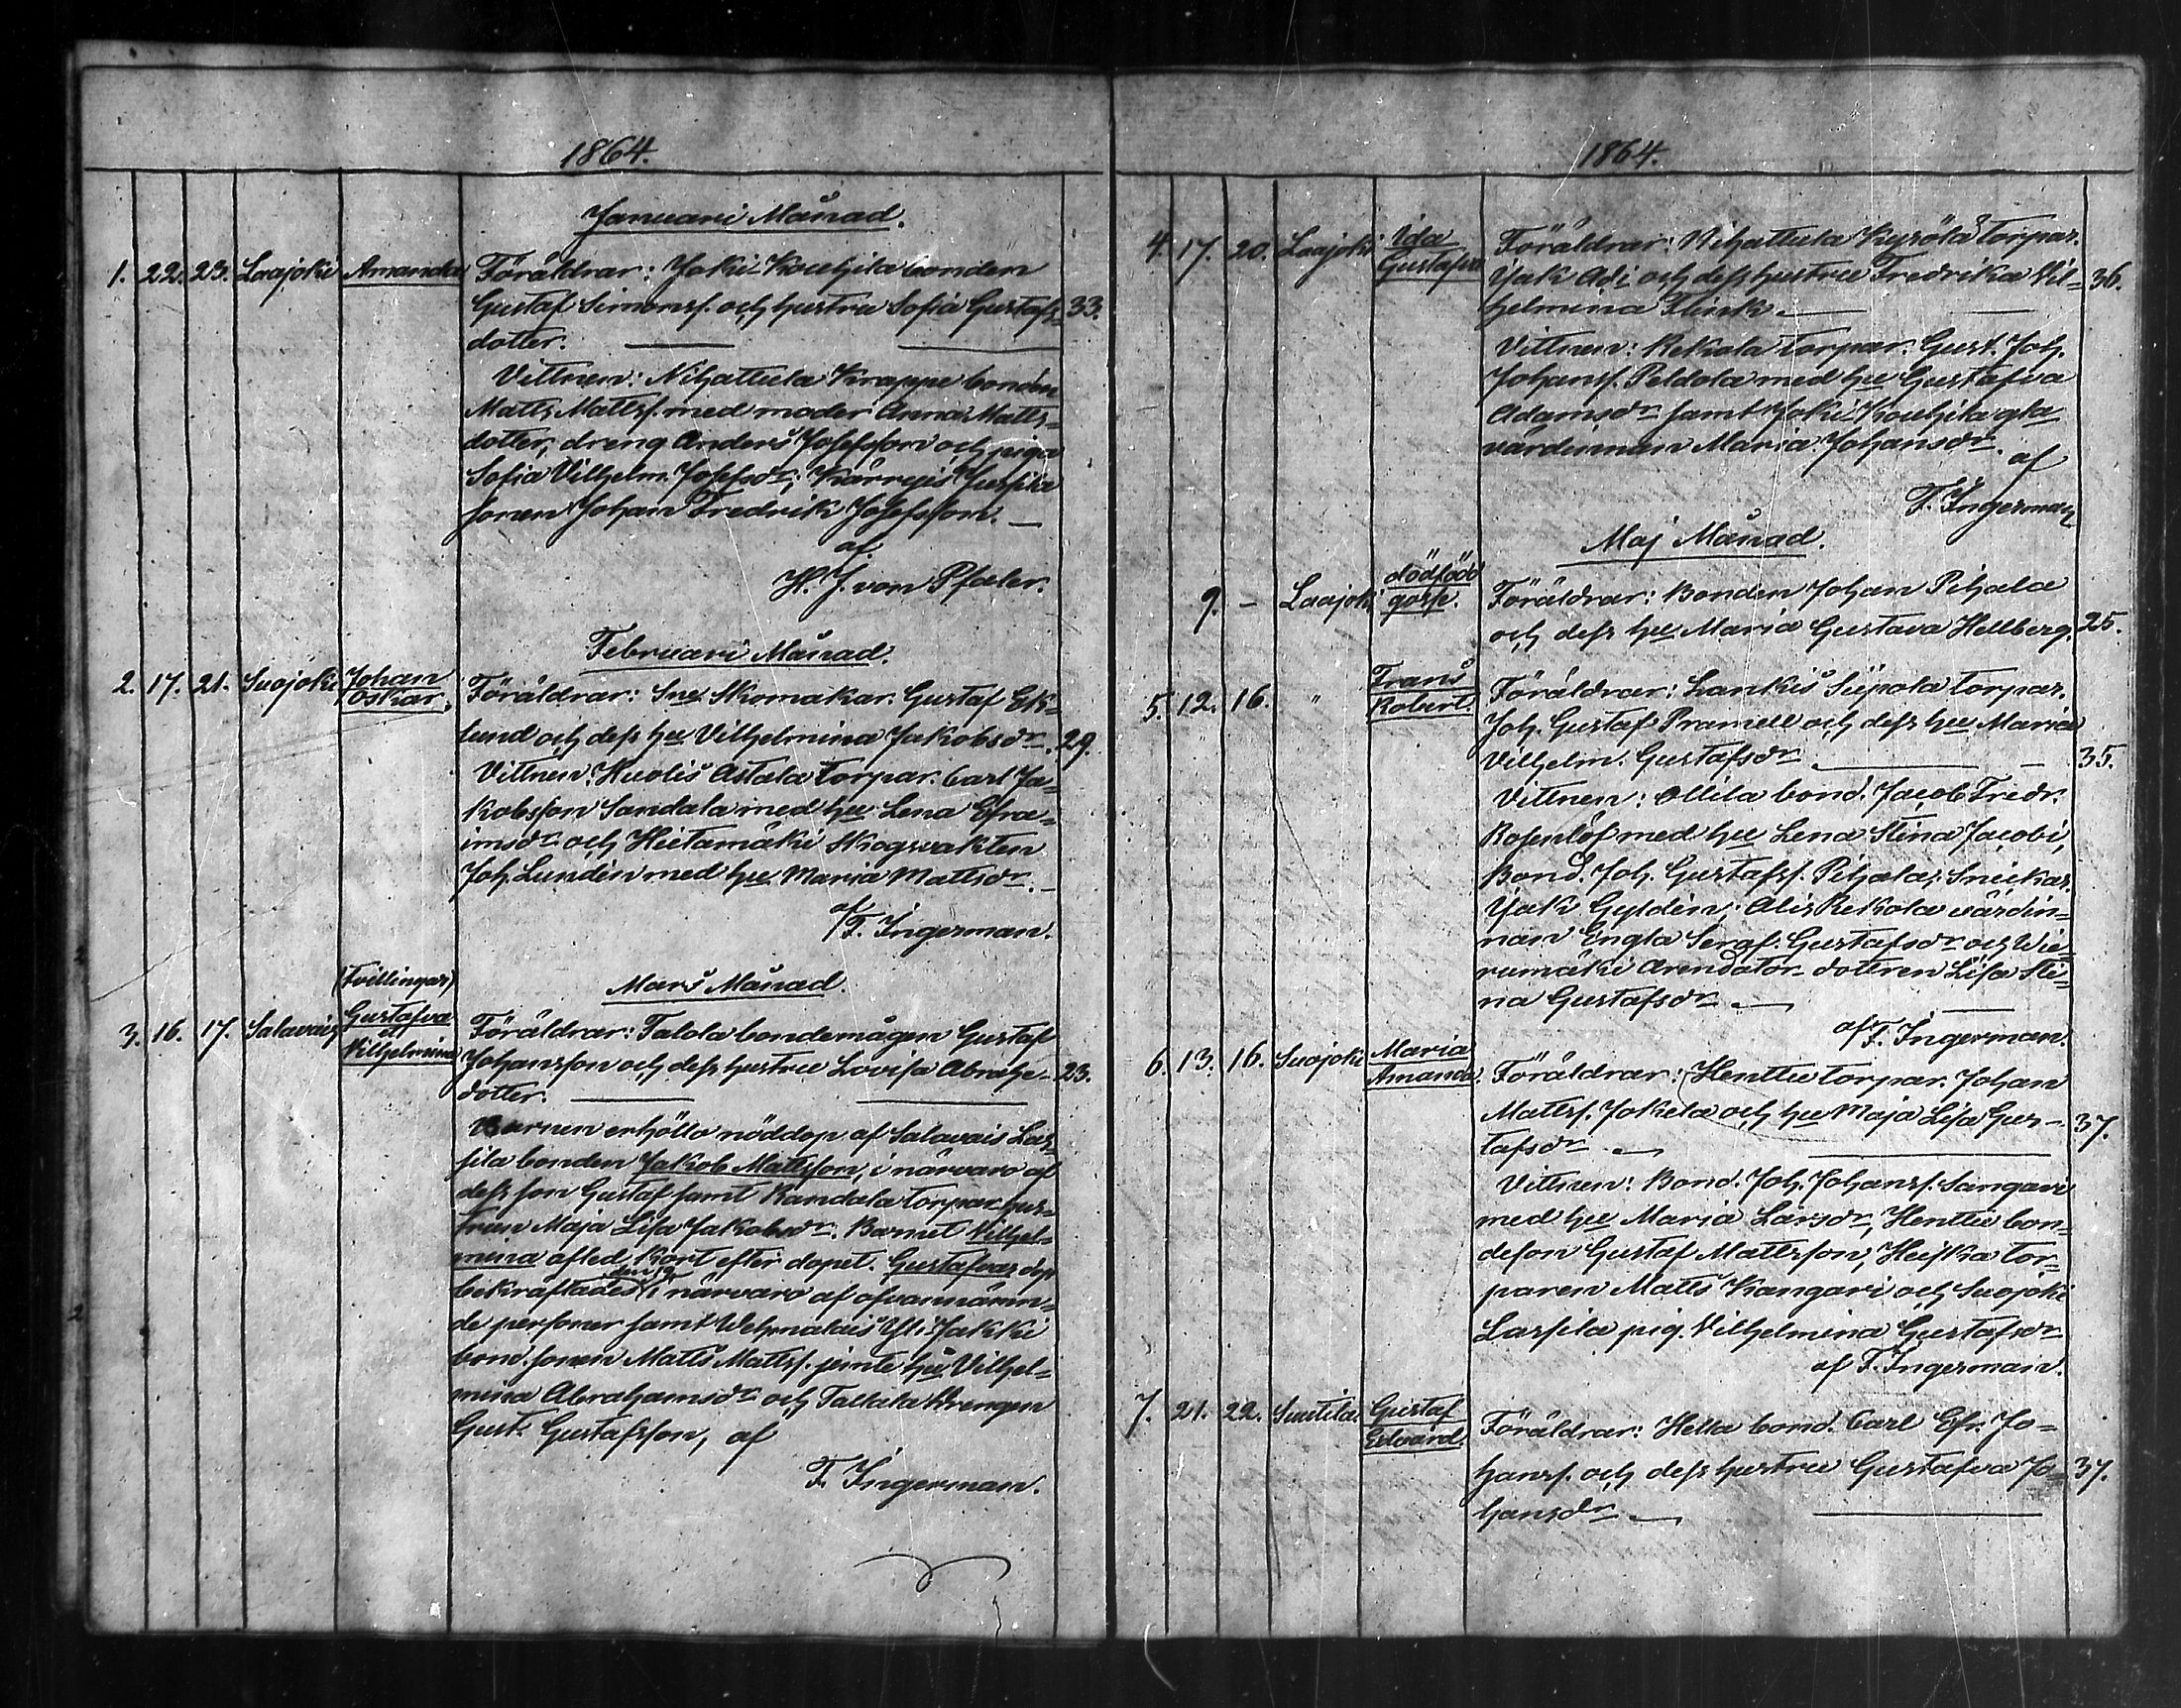 1864.
Januari Månad.
1. 22. 23. Laajoki Amanda Föräldrar: Joki Kouhila bonden
Gustaf Simonss. och hustru Sofia Gustafs- 33.
dotter.
Vittnen: Nihattula Krappe bonden
Matts Mattss. med moder Anna Matts-
dotter, dreng Anders Josefsson och piga
Sofia Vilhelm. Josefsdr, Kärryis Jussila
sonen Johan Fredrik Josefsson.
af
H. J. von Pfaler.
Februari Månad.
2. 17. 21. Suojoki Johan Oskar. Föräldrar: Sne Skomakar. Gustaf Ek-
lund och dess hu Vilhelmina Jakobsdr. 29.
Vittnen: Kuolis Astala torpar. Carl Ja-
kobsson Sandala med hu Lena Efra-
imsdr och Hietamäki Skogvakten
Joh. Lundén med hu Maria Mattsdr.
af
F. Ingerman.
Mars Månad
(Tvillingar)
3. 16. 17. Salavais Gustafva et Vilhelmina Föräldrar: Talola bondemågen Gustaf
Johansson och dess hustru Lovisa Abrahs- 23.
dotter.
Barnen erhöllo nöddop af Salavais Las-
sila bonden Jakob Mattsson, i närvaro af
dess son Gustaf samt Randala torpar hus-
trun Maja Lisa Jakobsdr. Barnet Vilhel-
mina afled kort efter dopet. Gustafvas dop
bekräftades i närvaro af ofvannämn-
de personer samt Vehmalais Yli Jakki
bond. sonen Matts Mattss. jemte hu Vilhel-
mina Abrahamsdr och Tallala drengen
Gust. Gustafsson, af
F. Ingerman.
1864.
4. 17. 20. Laajoki Ida Gustafva Föräldrar: Nihattula Kyrölä torpar.
Isak Adi och dess hustru Fredrika Vil- 36.
helmina Flink.
Vittnen: Rekola torpar. Gust. Joh.
Johanss. Peldola med hu Gustafva
Adamsdr samt Joki Kouhila gla
värdinnan Maria Johansdr.
af
F. Ingerman
Maj Månad.
9. - Laajoki dödfödd gosse. Föräldrar: Bonden Johan Pihala
och dess hu Maria Gustava Hellberg. 25.
5. 12. 16. " Frans Robert Föräldrar: Lankis Siipola torpar.
Joh. Gustaf Pramell och dess hu Maria
Vilhelm. Gustafsdr. 35.
Vittnen: Ollila bond. Jacob Fredr.
Rosenlöf med hu Lena Stina Jacobi,
Bond. Joh. Gustafss. Pihala, Snickar.
Isak Gyldén, Alis Rekola värdin-
nan Engla Seraf. Gustafsdr och Wie-
rumäki arendator dottren Lisa Sti-
na Gustafsdr.
af F. Ingerman.
6. 13. 16. Suojoki Maria Amanda. Föräldrar: Henttu torpar. Johan
Mattss. Jokela och hu Maja Lisa Gus- 37.
tafsdr.
Vittnen: Bond. Joh. Johanss. Sangari
med hu Maria Larsdr, Henttu bon-
deson Gustaf Mattsson, Heikka tor-
paren Matts Kangari och Suojoki
Lassila pig. Vilhelmina Gustafsdr
af F. Ingerman.
7. 21. 22. Suutila. Gustaf Edvard. Föräldrar: Hella bond. Carl Efr. Jo-
hanss. och dess hustru Gustafva Jo- 37.
hansdr.